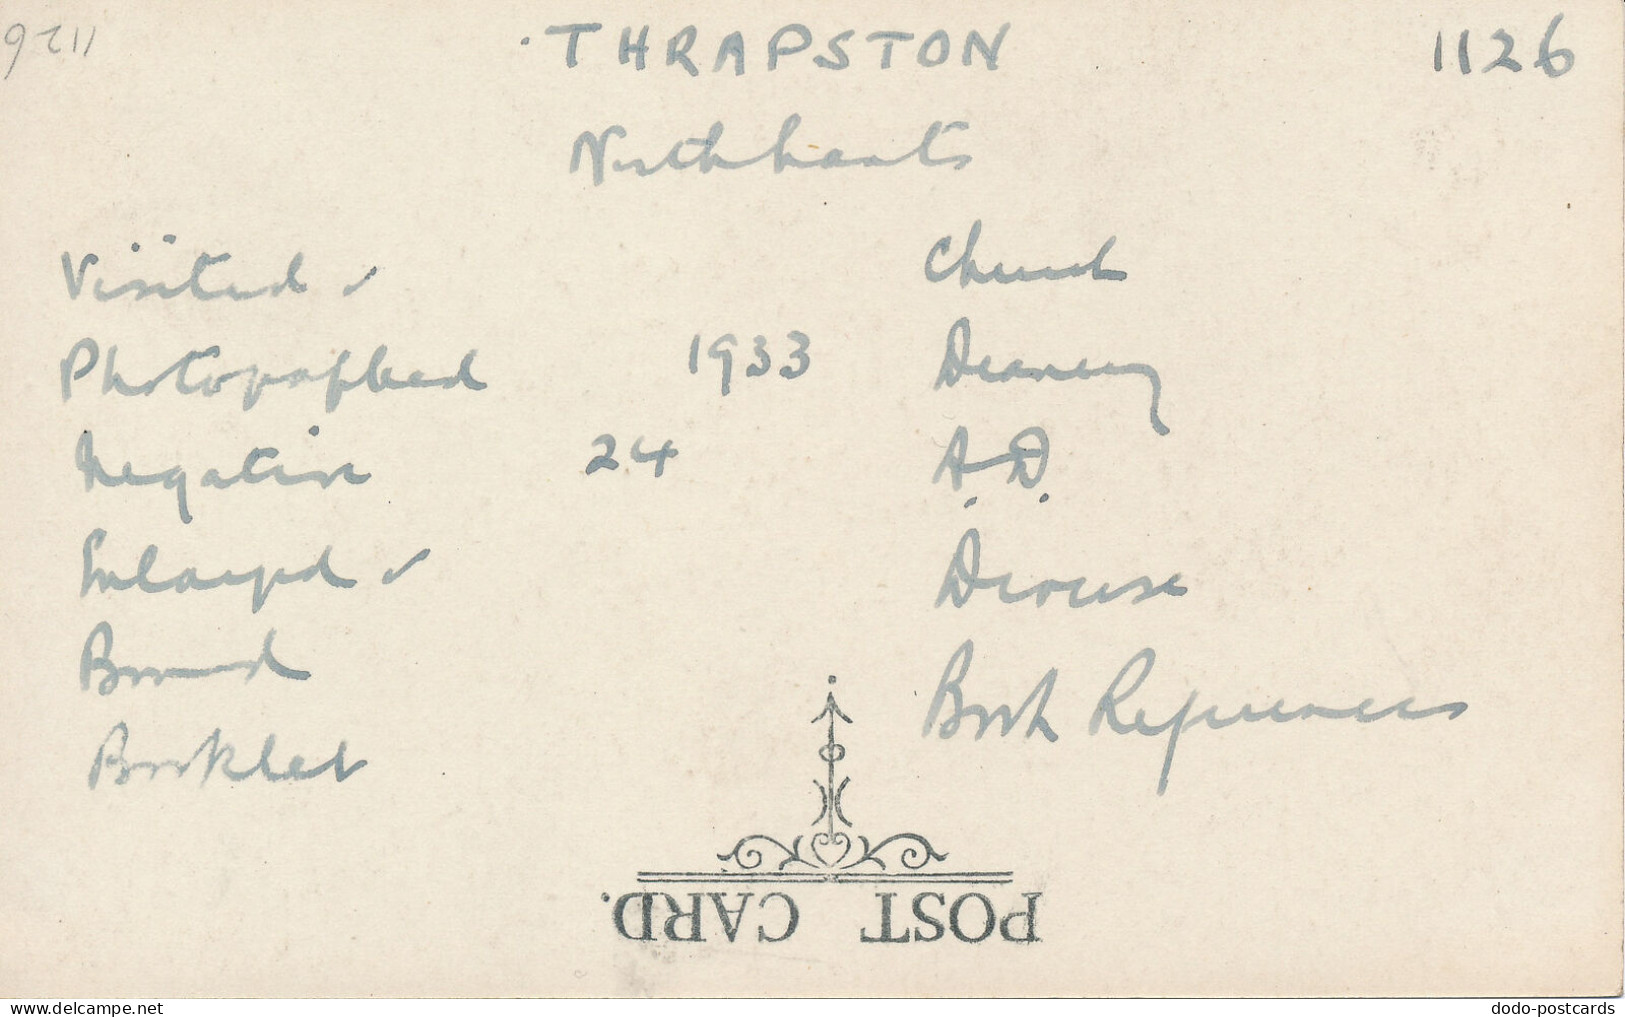 1126 · THRAPSTON 1126
Northhants
Visited ✓ Church
Photographed 1933 Deanery
Negative 24 A.D.
Enlarged ✓ Diocese
Bound Book References
Booklet
POST CARD.
www.delcampe.net dodo-postcards